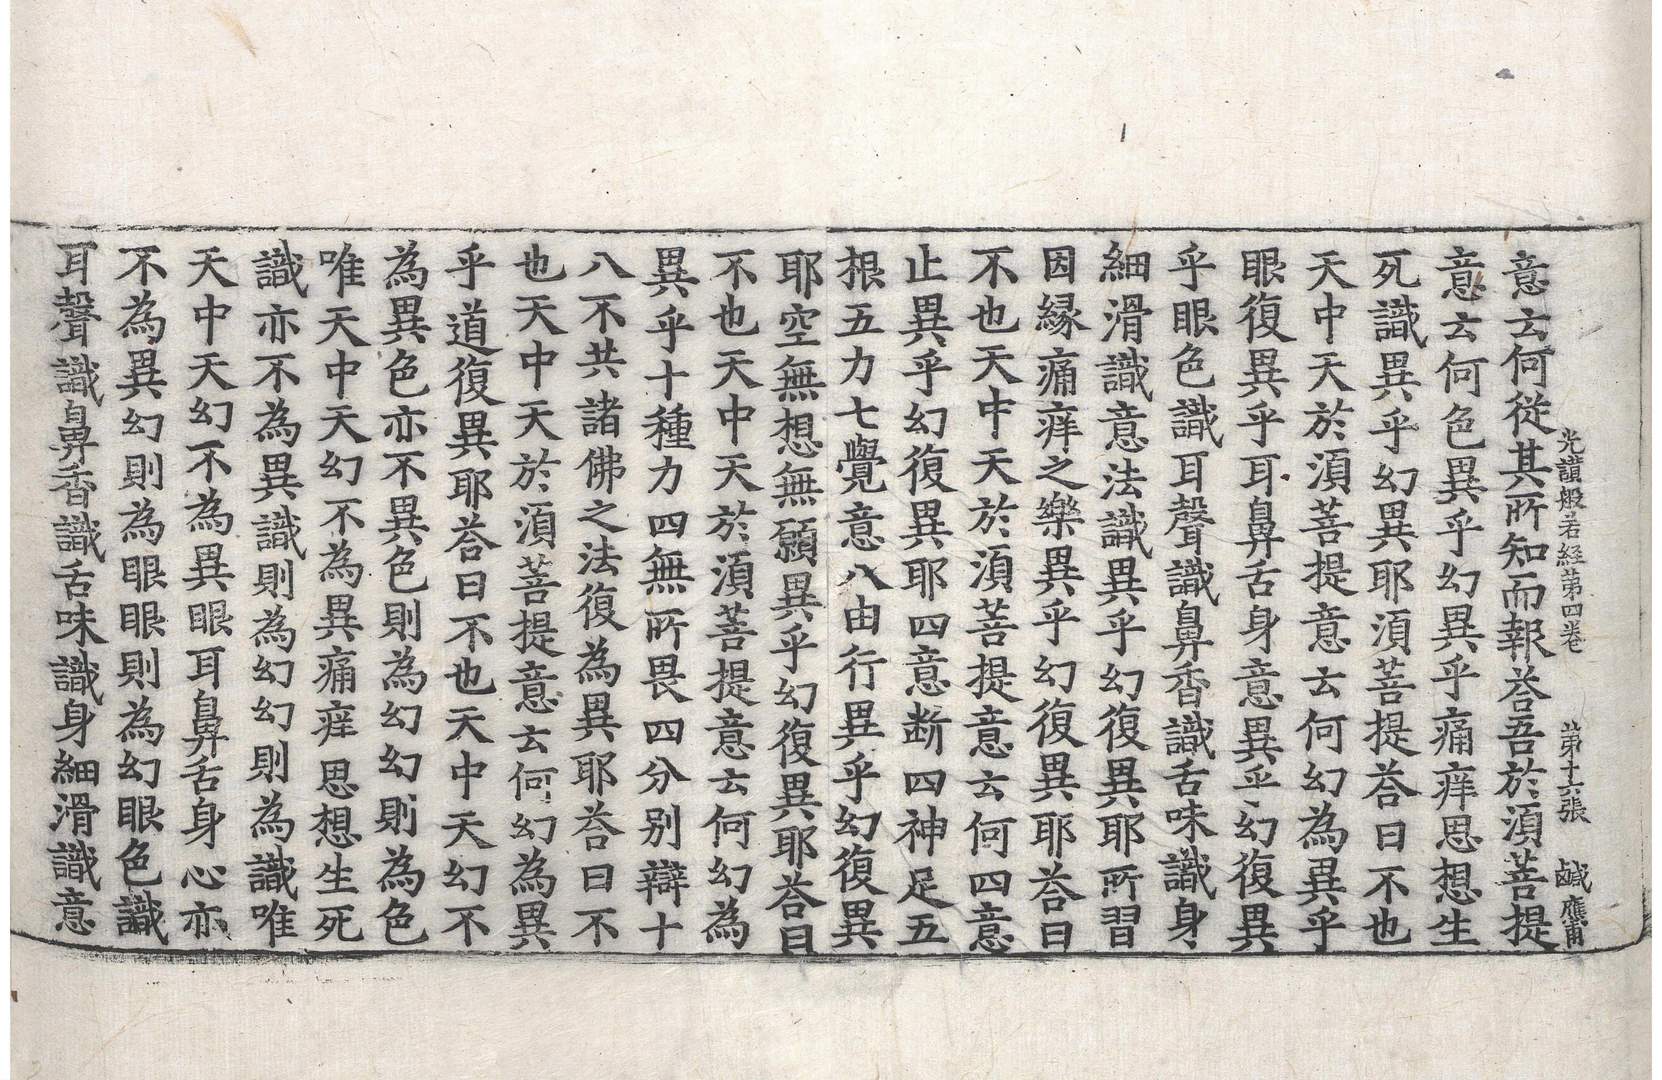 光讃般若経第四卷 第十六張 鹹 應甫
意云何從其所知而報荅吾於湏菩提
意云何色異乎幻異乎痛痒思想生
死識異乎幻異耶湏菩提荅曰不也
天中天於湏菩提意云何幻為異乎
眼復異乎耳鼻舌身意異乎幻復異
乎眼色識耳聲識鼻香識舌味識身
細滑識意法識異乎幻復異耶所習
因縁痛痒之樂異乎幻復異耶荅曰
不也天中天於湏菩提意云何四意
止異乎幻復異耶四意断四神足五
根五力七覺意八由行異乎幻復異
耶空無想無願異乎幻復異耶荅曰
不也天中天於湏菩提意云何幻為
異乎十種力四無所畏四分别辯十
八不共諸佛之法復為異耶荅曰不
也天中天於湏菩提意云何幻為異
乎道復異耶荅曰不也天中天幻不
為異色亦不異色則為幻幻則為色
唯天中天幻不為異痛痒思想生死
識亦不為異識則為幻幻則為識唯
天中天幻不為異眼耳鼻舌身心亦
不為異幻則為眼眼則為幻眼色識
耳聲識鼻香識舌味識身細滑識意